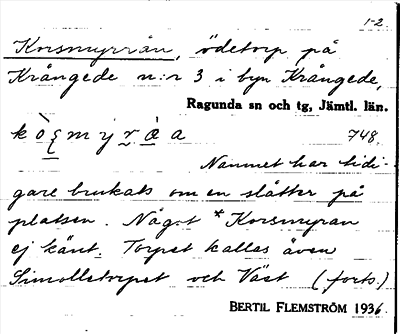 1-2.
Korsmyrrån, ödetorp på
Krångede n:r 3 i byn Krångede,
Ragunda sn och tg, Jämtl. län.
748.
Nammet har tidi-
gare brukats om en slåtter på
platsen. Något *Korsmyran
ej känt. Torpet kallas även
Simolletorpet och Väst (forts.)
BERTIL FLEMSTRÖM 1936.